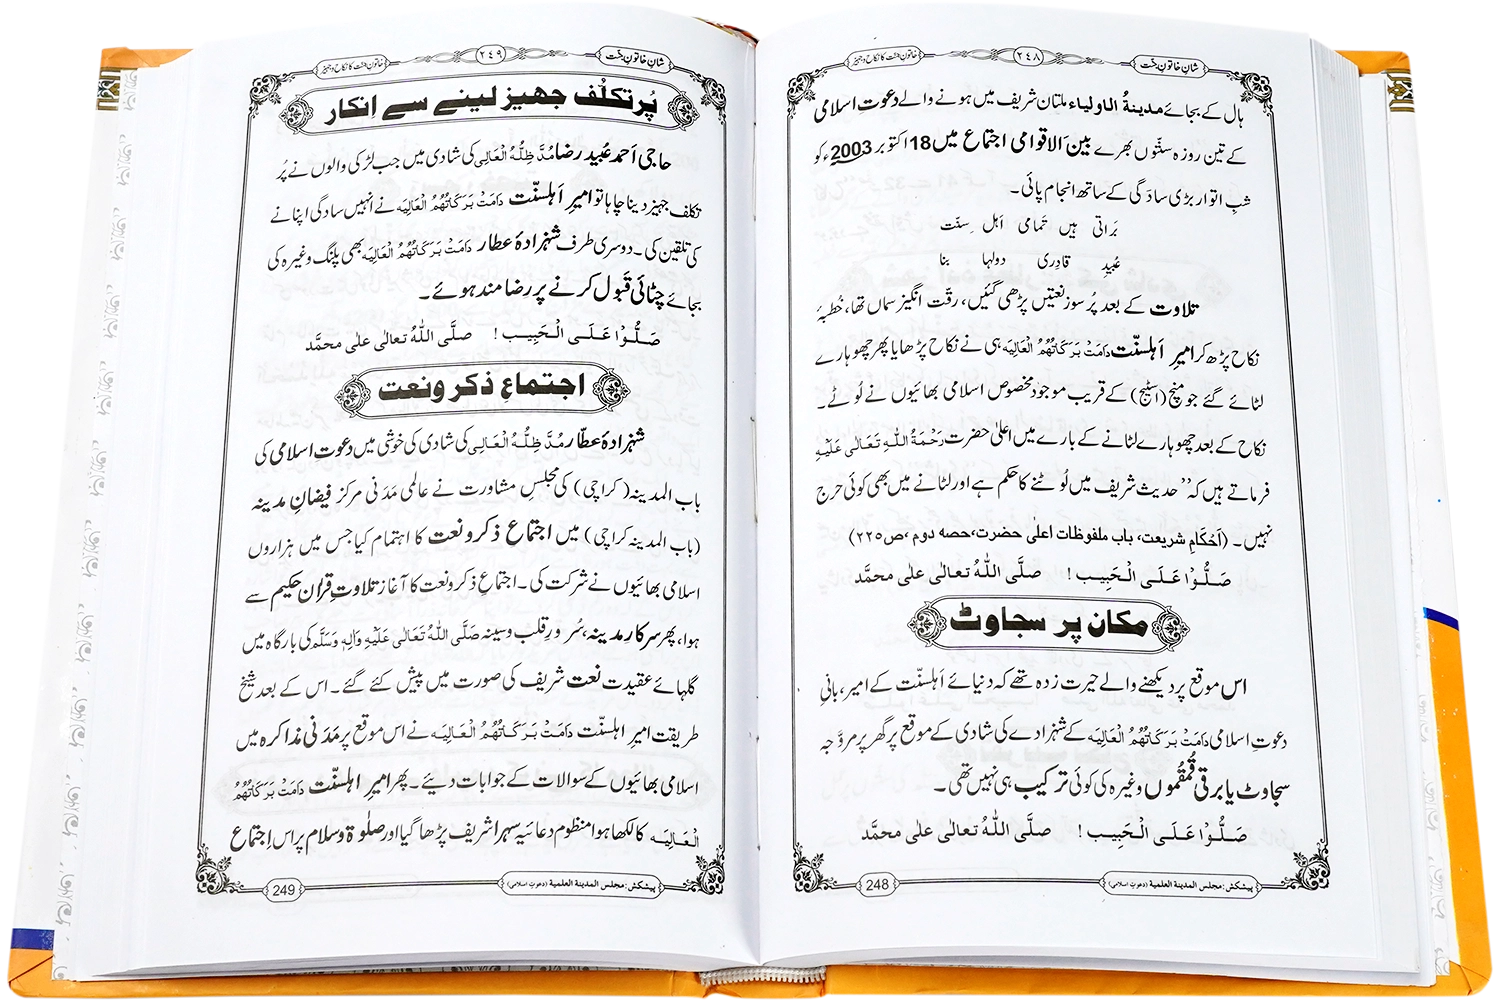 شانِ خاتونِ جنّت
٢٤٨
خاتونِ جنّت کا نکاح و جہیز
ہال کے بجائے مدینۃُ الاولیاء ملتان شریف میں ہونے والے دعوتِ اسلامی
کے تین روزہ سنّتوں بھرے بینَ الاقوامی اجتماع میں 18 اکتوبر 2003ء کو
شبِ اتوار بڑی سادَگی کے ساتھ انجام پائی۔
بَراتی ہیں تَمامی اہلِ سنّت
عُبیدِ قادِری دولہا بنا
تلاوت کے بعد پُر سوز نعتیں پڑھی گئیں، رقّت انگیز سماں تھا، خُطبۂ
نکاح پڑھ کر امیرِ اَہلسنّت دَامَتْ بَرَکَاتُہُمُ الْعَالِیَہ ہی نے نکاح پڑھایا پھر چھوہارے
لٹائے گئے جو منچ (اسٹیج) کے قریب موجود مخصوص اسلامی بھائیوں نے لُوٹے۔
نکاح کے بعد چھوہارے لٹانے کے بارے میں اعلیٰ حضرت رَحْمَۃُ اللہِ تَعَالٰی عَلَیْہِ
فرماتے ہیں کہ ’’حدیث شریف میں لُوٹنے کا حکم ہے اور لٹانے میں بھی کوئی حرج
نہیں۔ (اَحْکَامِ شریعت، باب ملفوظات اعلیٰ حضرت،حصہ دوم ،ص۲۲۵)
صَلُّوْا عَلَی الْحَبِیب! صلَّی اللہُ تعالٰی علٰی محمَّد
مکان پر سجاوٹ
اس موقع پر دیکھنے والے حیرت زدہ تھے کہ دنیائے اَہلسنّت کے امیر، بانیٔ
دعوتِ اسلامی دَامَتْ بَرَکَاتُہُمُ الْعَالِیَہ کے شہزادے کی شادی کے موقع پر گھر پر مروَّجہ
سجاوٹ یا برقی قُمقُموں وغیرہ کی کوئی ترکیب ہی نہیں تھی۔
صَلُّوْا عَلَی الْحَبِیب! صلَّی اللہُ تعالٰی علٰی محمَّد
پیشکش: مجلس المدینۃ العلمیۃ (دعوتِ اسلامی)
248
شانِ خاتونِ جنّت
٢٤٩
خاتونِ جنّت کا نکاح و جہیز
پُر تکلُّف جہیز لینے سے انکار
حاجی اَحمد عُبید رضا مُدَّ ظِلُّہُ الْعَالِی کی شادی میں جب لڑکی والوں نے پُر
تکلف جہیز دینا چاہا تو امیرِ اَہلسنّت دَامَتْ بَرَکَاتُہُمُ الْعَالِیَہ نے انہیں سادگی اپنانے
کی تلقین کی۔ دوسری طرف شہزادۂ عطار دَامَتْ بَرَکَاتُہُمُ الْعَالِیَہ بھی پلنگ وغیرہ کی
بجائے چٹائی قَبول کرنے پر رِضا مند ہوئے۔
صَلُّوْا عَلَی الْحَبِیب! صلَّی اللہُ تعالٰی علٰی محمَّد
اجتماعِ ذکر و نعت
شہزادۂ عطّار مُدَّ ظِلُّہُ الْعَالِی کی شادی کی خوشی میں دعوتِ اسلامی کی
باب المدینہ (کراچی) کی مجلسِ مشاورت نے عالمی مَدَنی مرکز فیضانِ مدینہ
(باب المدینہ کراچی) میں اجتماعِ ذکر و نعت کا اہتمام کیا جس میں ہزاروں
اسلامی بھائیوں نے شرکت کی۔ اجتماعِ ذکر و نعت کا آغاز تلاوتِ قرانِ حکیم سے
ہوا، پھر سرکارِ مدینہ، سُرورِ قلب و سینہ صَلَّی اللہُ تَعَالٰی عَلَیْہِ وَاٰلِہٖ وَسَلَّم کی بارگاہ میں
گلہائے عقیدت نعت شریف کی صورت میں پیش کئے گئے۔ اس کے بعد شیخِ
طریقت امیرِ اہلسنّت دَامَتْ بَرَکَاتُہُمُ الْعَالِیَہ نے اس موقع پر مَدَنی مذاکرہ میں
اسلامی بھائیوں کے سوالات کے جوابات دئیے۔ پھر امیرِ اہلسنّت دَامَتْ بَرَکَاتُہُمُ
الْعَالِیَہ کا لکھا ہوا منظوم دعائیہ سہرا شریف پڑھا گیا اور صلٰوۃ و سلام پر اس اِجتماع
پیشکش: مجلس المدینۃ العلمیۃ (دعوتِ اسلامی)
249